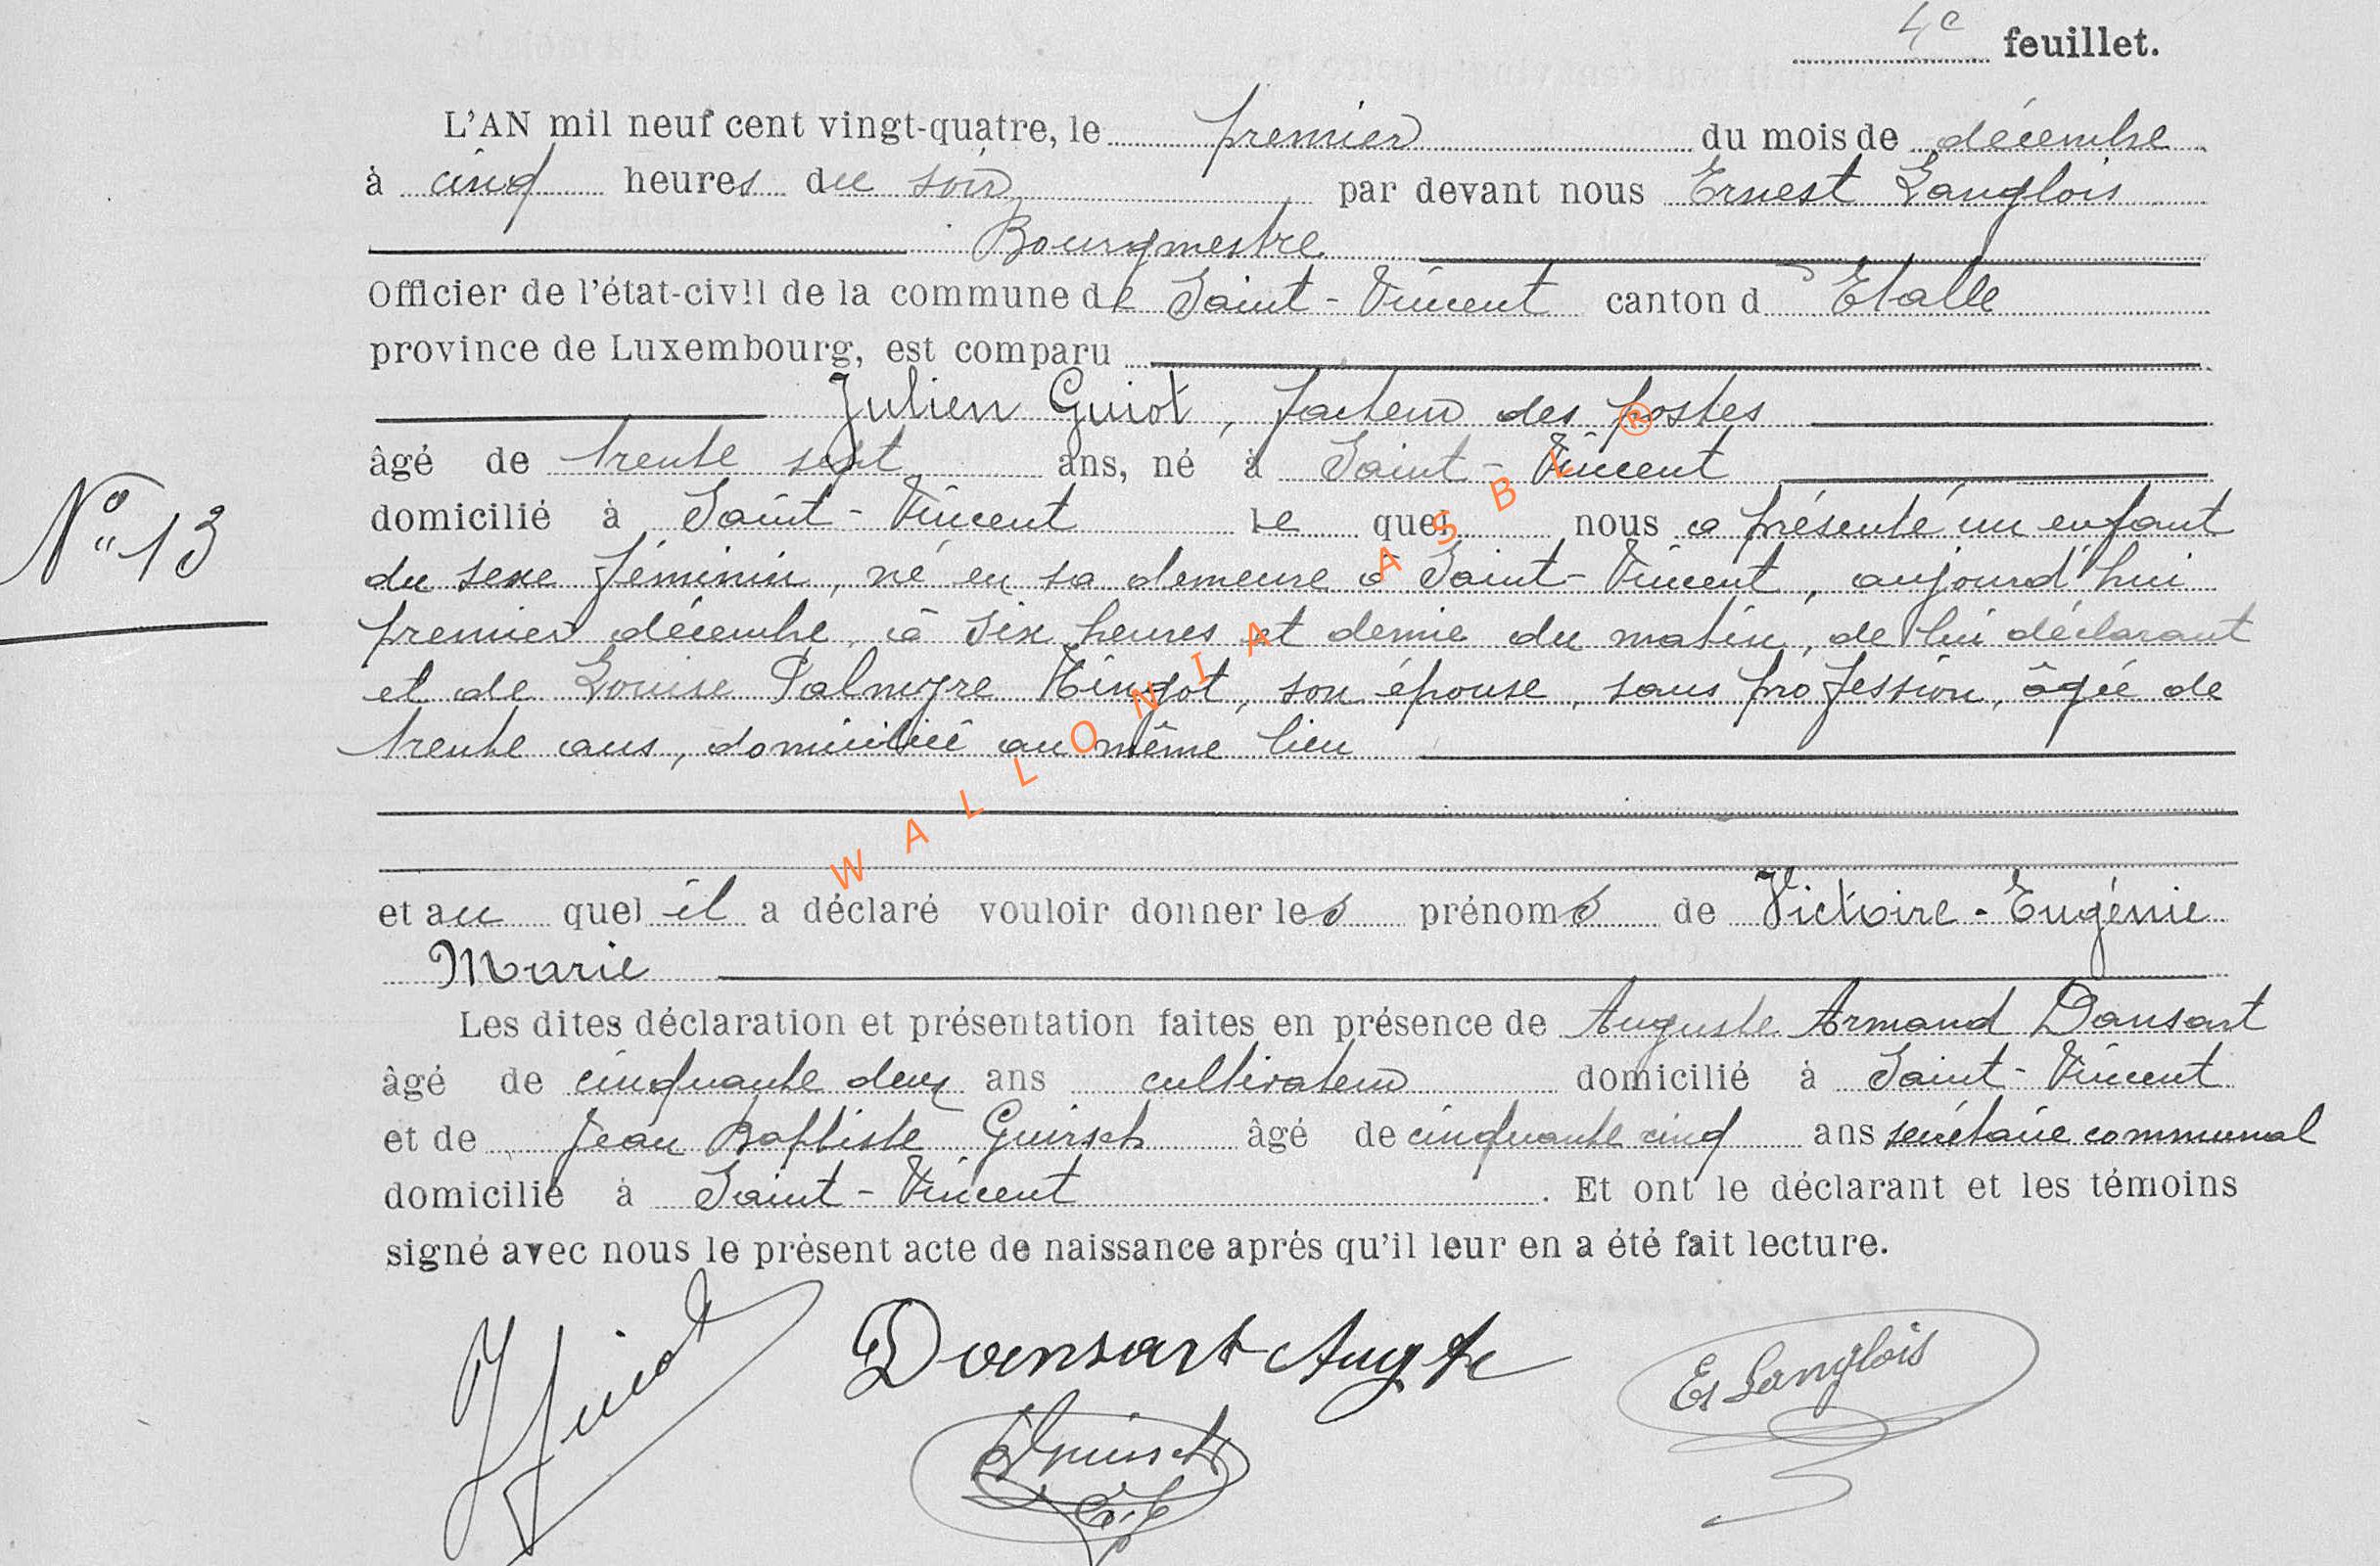 4e feuillet.
L'AN mil neuf cent vingt-quatre, le premier du mois de décembre
à cinq heures du soir par devant nous Ernest Langlois
Bourgmestre
Officier de l'état-civil de la commune de Saint-Vincent canton d'Etalle
province de Luxembourg, est comparu
Julien Guiot, facteur des postes
âgé de trente sept ans, né à Saint-Vincent
N° 13
domicilié à Saint-Vincent lequel nous a présenté un enfant
du sexe féminin, né en sa demeure à Saint-Vincent, aujourd'hui
premier décembre, à six heures et demie du matin, de lui déclarant
et de Louise Palmyre Hingot, son épouse, sans profession, âgée de
trente ans, domiciliée au même lieu
et auquel il a déclaré vouloir donner les prénoms de Victoire-Eugénie
Marie
Les dites déclaration et présentation faites en présence de Auguste Armand Dansart
âgé de cinquante deux ans cultivateur domicilié à Saint-Vincent
et de Jean Baptiste Guirsch âgé de cinquante cinq ans secrétaire communal
domicilié à Saint-Vincent. Et ont le déclarant et les témoins
signé avec nous le présent acte de naissance aprés qu'il leur en a été fait lecture.
J Guiot
Dansart Augte
Es Langlois
Guirsch
WALLONIA ASBL ®